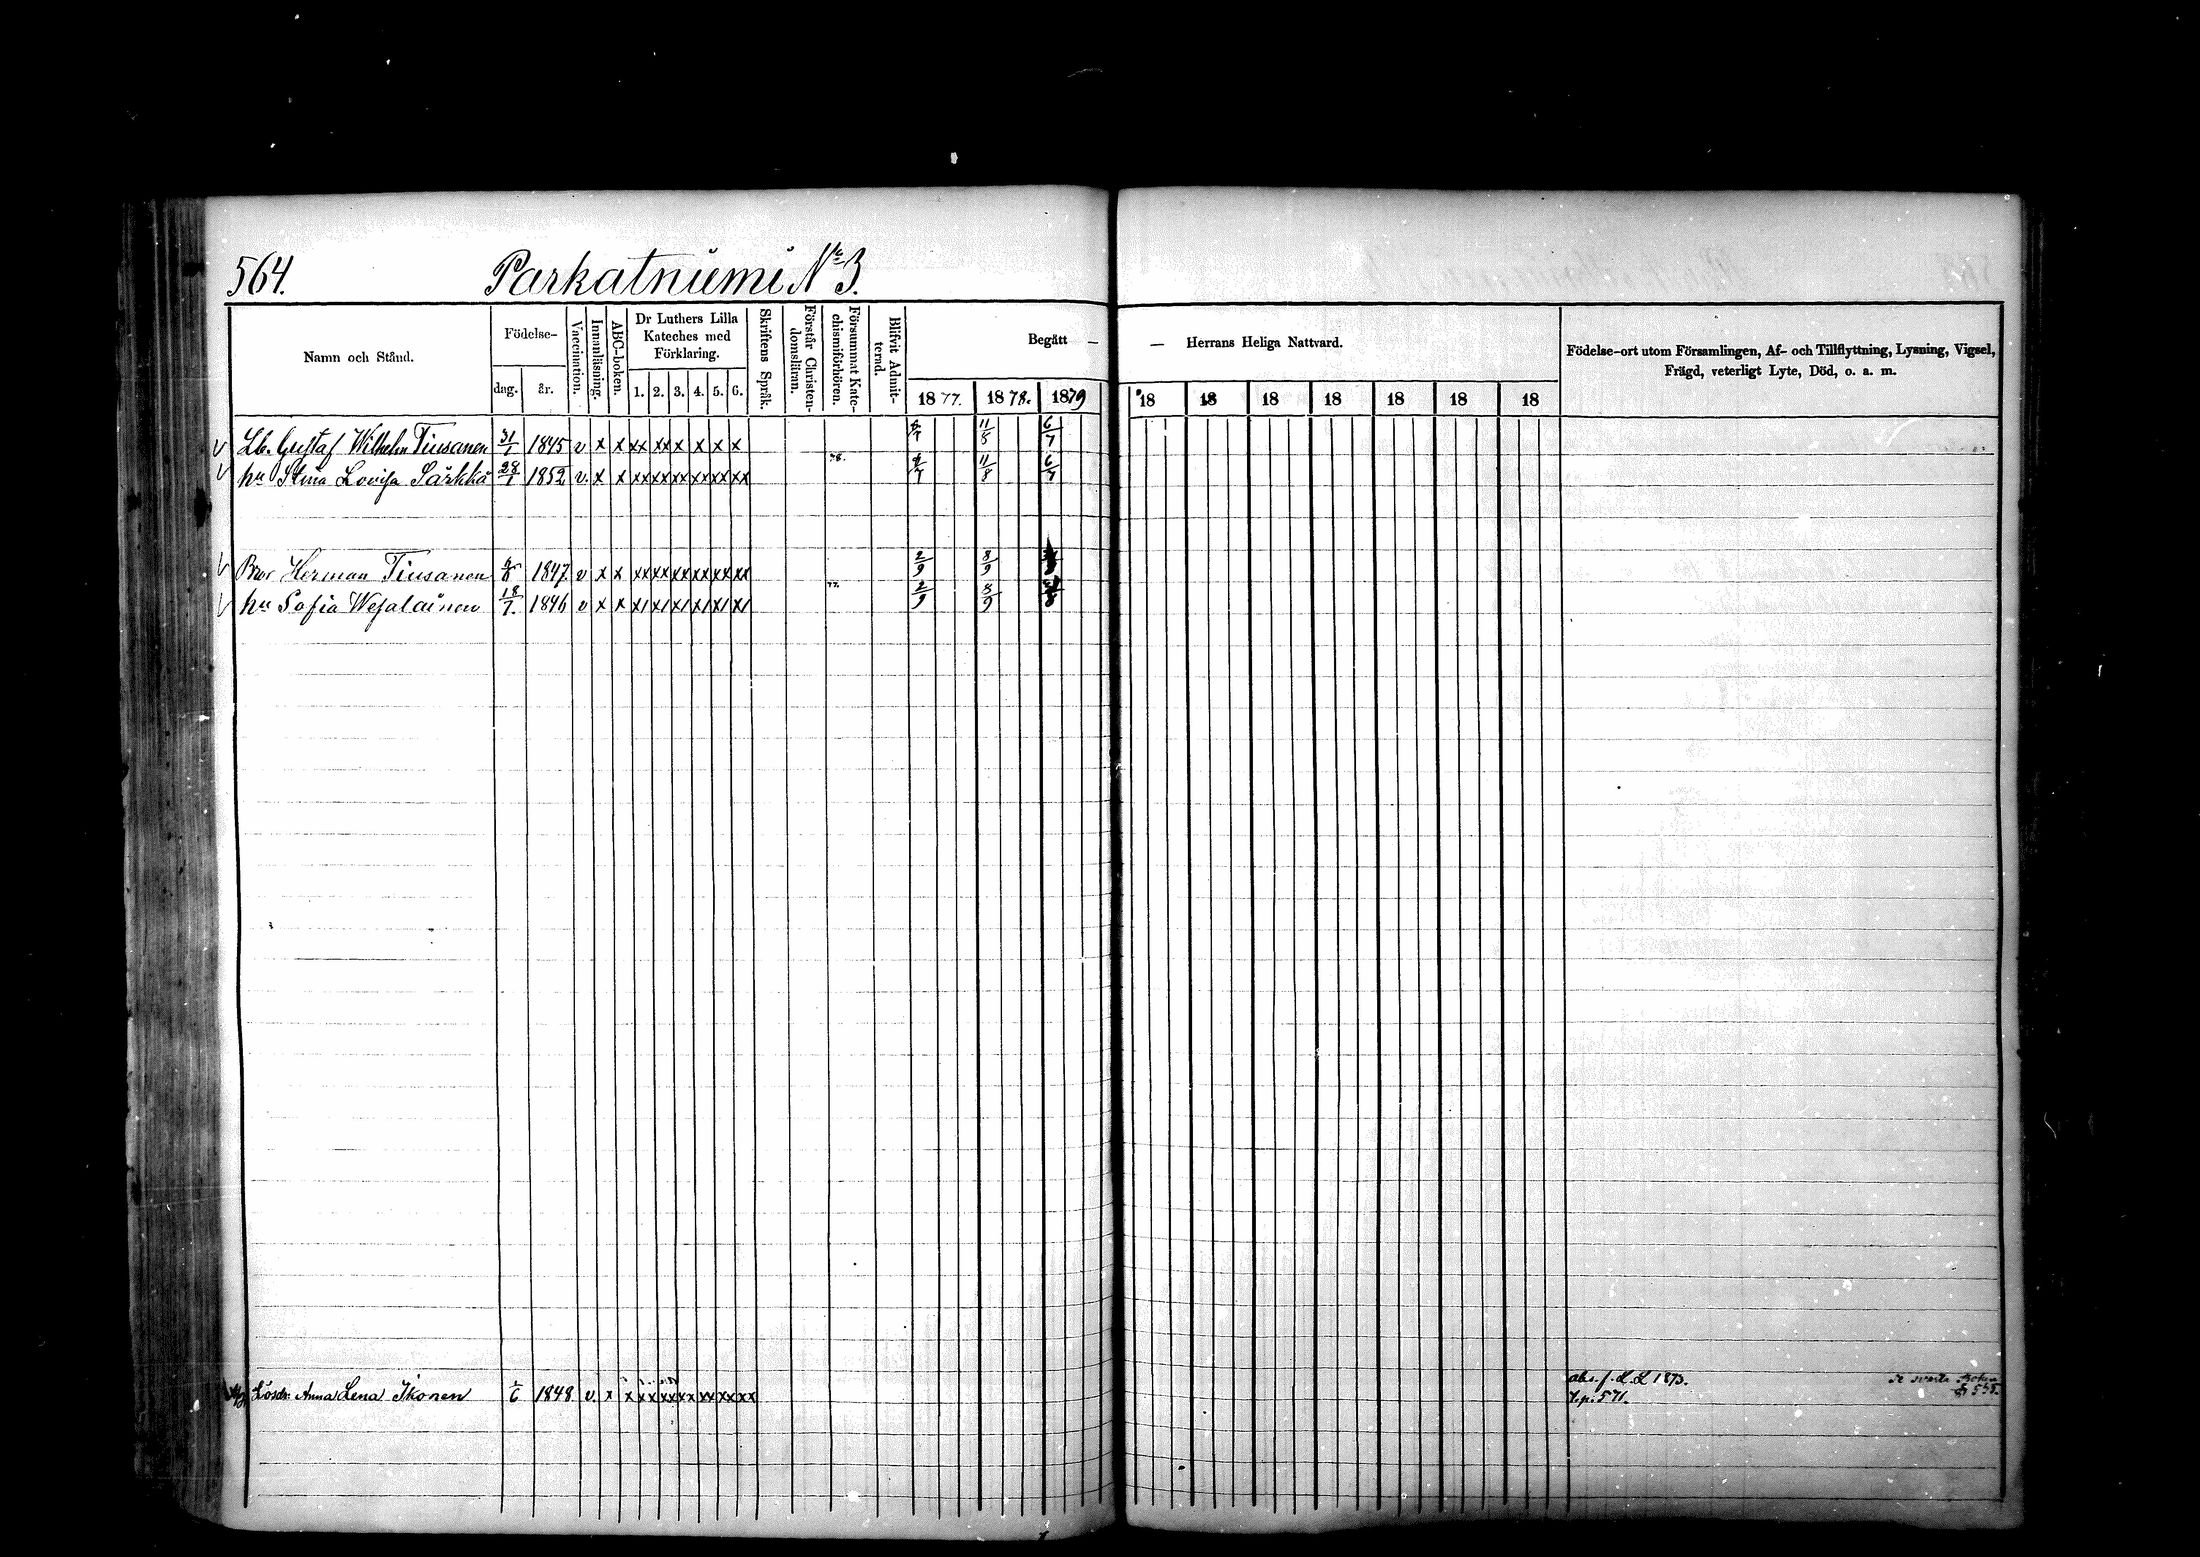 564. Parkatniemi No 3.
Namn och Stånd. Födelse- dag. år. Vaccination. Innanläsning. ABC-boken. Dr Luthers Lilla Kateches med Förklaring. 1. 2. 3. 4. 5. 6. Skriftens Språk. Förstår Christendomsläran. Försummat Katechismiförhören. Blifvit Admitterad. Begått — 1877. 1878. 1879
— Herrans Heliga Nattvard. 18 18 18 18 18 18 18
Födelse-ort utom Församlingen, Af- och Tillflyttning, Lysning, Vigsel,
Frägd, veterligt Lyte, Död, o. a. m.
v Lb. Gustaf Wilhelm Tiusanen 31/1 1845 v x x xx xx x x x x 11/8 6/7
v hu Stina Lovisa Särkkä 28/1 1852 v. x x xx xx xx xx xx xx 78. 11/8 6/7
v Bror Herman Tiusanen 1847 v x x xx xx xx xx xx xx 2/9 8/9
v hu Sofia Wesalainen 18/7. 1846 v x x x/ x/ x/ x/ x/ x/ 77. 2/9 8/9
Lösdr. Anna Lena Ikonen 1848 v. x x xx xx xx xx xx xx abs. f. L. L 1873.
T. p. 571. p 558.